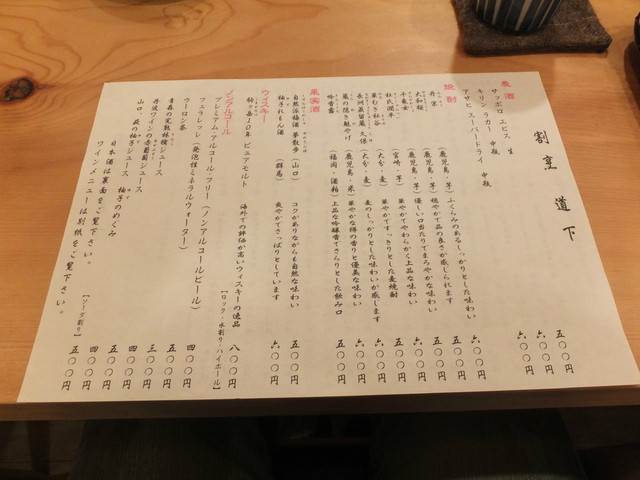 割烹 道下
麦酒
サッポロ エビス 生 五〇〇円
キリン ラガー 中瓶 六〇〇円
アサヒ スーパードライ 中瓶 六〇〇円
焼酎
丹宗 (鹿児島・芋) ふくらみのあるしっかりとした味わい 六〇〇円
大和桜 (鹿児島・芋) 穏やかで品の良さが感じられます 五〇〇円
千亀女 (鹿児島・芋) 優しい口当たりでまろやかな味わい 五〇〇円
杜氏潤平 (宮崎・芋) 華やかでやわらかく上品な味わい 五〇〇円
兼八 (大分・麦) 華やかですっきりとした麦焼酎
(大分・麦) 麦のしっかりとした味わいが感じます 六〇〇円
蔵の隠き魅やげ (鹿児島・米) 華やかな樽の香りと優美な味わい 六〇〇円
吟香露 (福岡・酒粕) 上品な吟醸香でさらりとした飲み口 五〇〇円
果実酒
自然派酒 夢散歩 (山口) コクがありながらも自然な味わい 五〇〇円
柚子れもん酒 (群馬) 爽やかでさっぱりとしています 六〇〇円
ウィスキー
10年 ピュアモルト 海外での評価が高いウィスキーの逸品 八〇〇円
【ロック・水割り・ハイボール】
ノンアルコール
プレミアム アルコール フリー (ノンアルコールビール)
フェラレッレ (発泡性ミネラルウォーター) 四〇〇円
ウーロン茶 五〇〇円
青森の完熟林檎ジュース 三〇〇円
丹波ワインの赤葡萄ジュース 四〇〇円
山口、萩の柚子ジュース 柚子のめぐみ 五〇〇円
【ソーダ割り】 五〇〇円
日本酒は裏面をご覧下さい。
ワインメニューは別紙をご覧下さい。